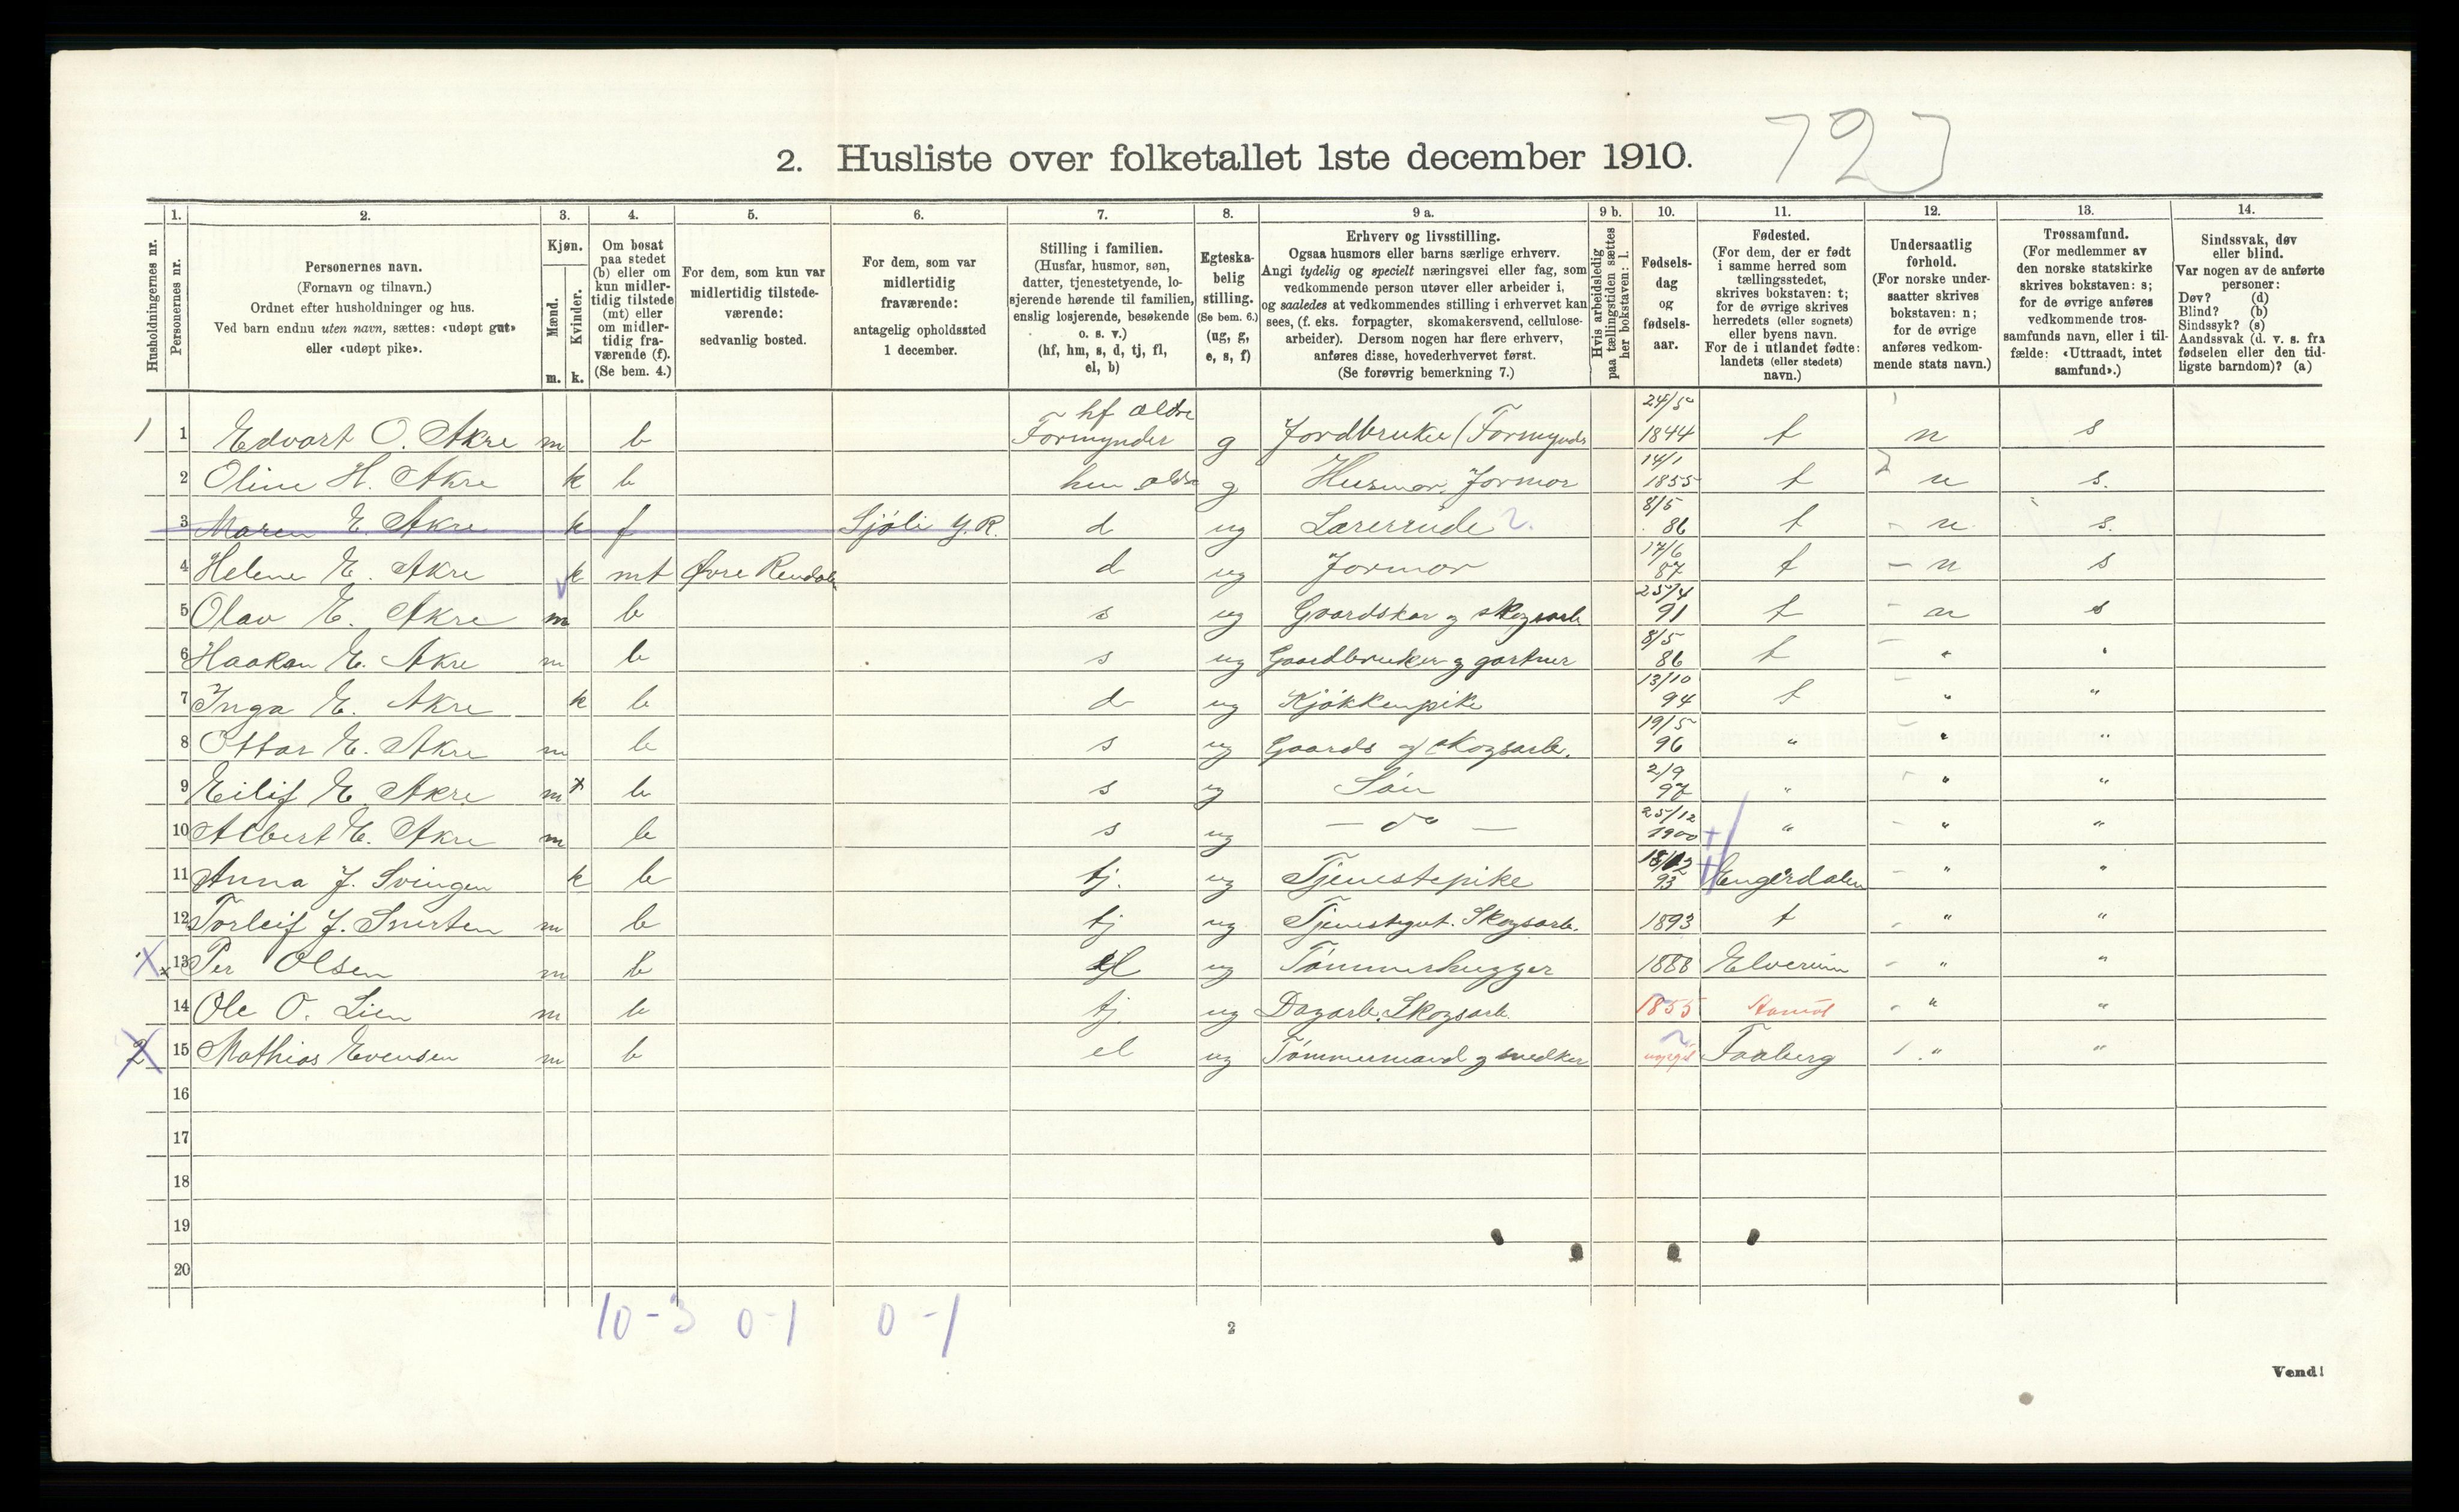 723
2. Husliste over folketallet 1ste december 1910.
Husholdningernes nr.
1. Personernes nr.
2. Personernes navn.
(Fornavn og tilnavn.)
Ordnet efter husholdninger og hus.
Ved barn endnu uten navn, sættes: «udøpt gut»
eller «udøpt pike».
3. Kjøn.
Mænd. Kvinder.
m. k.
4. Om bosat
paa stedet
(b) eller om
kun midler-
tidig tilstede
(mt) eller
om midler-
tidig fra-
værende (f).
(Se bem. 4.)
5. For dem, som kun var
midlertidig tilstede-
værende:
sedvanlig bosted.
6. For dem, som var
midlertidig
fraværende:
antagelig opholdssted
1 december.
7. Stilling i familien.
(Husfar, husmor, søn,
datter, tjenestetyende, lo-
sjerende hørende til familien,
enslig losjerende, besøkende
o. s. v.)
(hf, hm, s, d, tj, fl,
el, b)
8. Egteska-
belig
stilling.
(Se bem. 6.)
(ug, g,
e, s, f)
9 a. Erhverv og livsstilling.
Ogsaa husmors eller barns særlige erhverv.
Angi tydelig og specielt næringsvei eller fag, som
vedkommende person utøver eller arbeider i,
og saaledes at vedkommendes stilling i erhvervet kan
sees, (f. eks. forpagter, skomakersvend, cellulose-
arbeider). Dersom nogen har flere erhverv,
anføres disse, hovederhvervet først.
(Se forøvrig bemerkning 7.)
9 b. Hvis arbeidsledig
paa tællingstiden sættes
her bokstaven: l.
10. Fødsels-
dag
og
fødsels-
aar.
11. Fødested.
(For dem, der er født
i samme herred som
tællingsstedet,
skrives bokstaven: t;
for de øvrige skrives
herredets (eller sognets)
eller byens navn.
For de i utlandet fødte:
landets (eller stedets)
navn.)
12. Undersaatlig
forhold.
(For norske under-
saatter skrives
bokstaven: n;
for de øvrige
anføres vedkom-
mende stats navn.)
13. Trossamfund.
(For medlemmer av
den norske statskirke
skrives bokstaven: s;
for de øvrige anføres
vedkommende tros-
samfunds navn, eller i til-
fælde: «Uttraadt, intet
samfund».)
14. Sindssvak, døv
eller blind.
Var nogen av de anførte
personer:
Døv? (d)
Blind? (b)
Sindssyk? (s)
Aandssvak (d. v. s. fra
fødselen eller den tid-
ligste barndom)? (a)
hf ældre 24/5
1 1 Edvart O. Akre m b Formynder g Jordbruker (Formynder 1844 t n s
14/1
2 Oline H. Akre k b hm ældre g Husmor. Jormor 1855 t n s.
8/5
3 Maren E. Akre k f Sjöli Y. R. d ug Lærerinde 86 t n s.
17/6
4 Helene E. Akre k mt Øvre Rendalen d ug Jormor 87 t n s
25/4
5 Olav E. Akre m b s ug Gvardskar og skogsarb 91 t n s
8/5
6 Haakon E. Akre m b s ug Gaardbruker og gartner 86 t " "
13/10
7 Inga E. Akre k b d ug Kjøkkenpike 94 t " "
19/5
8 Ottar E. Akre m b s ug Gaards og skogsarb. 96 " " "
2/9
9 Eilif E. Akre m x b s ug Sön 97 " " "
25/12
10 Albert E. Akre m b s ug — do — 1900 " " "
18/12
11 Anna J. Svingen k b tj. ug Tjenestepike 93 Engerdalen " "
12 Torleif J. Snerten m b tj ug Tjenestegut. Skogsarb. 1893 t " "
X x 13 Per Olsen m b el ug Tømmerhugger 1888 Elverum " "
14 Ole O. Lien m b tj. ug Dagarb. Skogsarb. 1855 Aamot " "
2 15 Mathias Evensen m b el ug Tømmermand og snedker Faaberg " "
16
17
18
19
20
10-3 0-1 0-1
2
Vend!